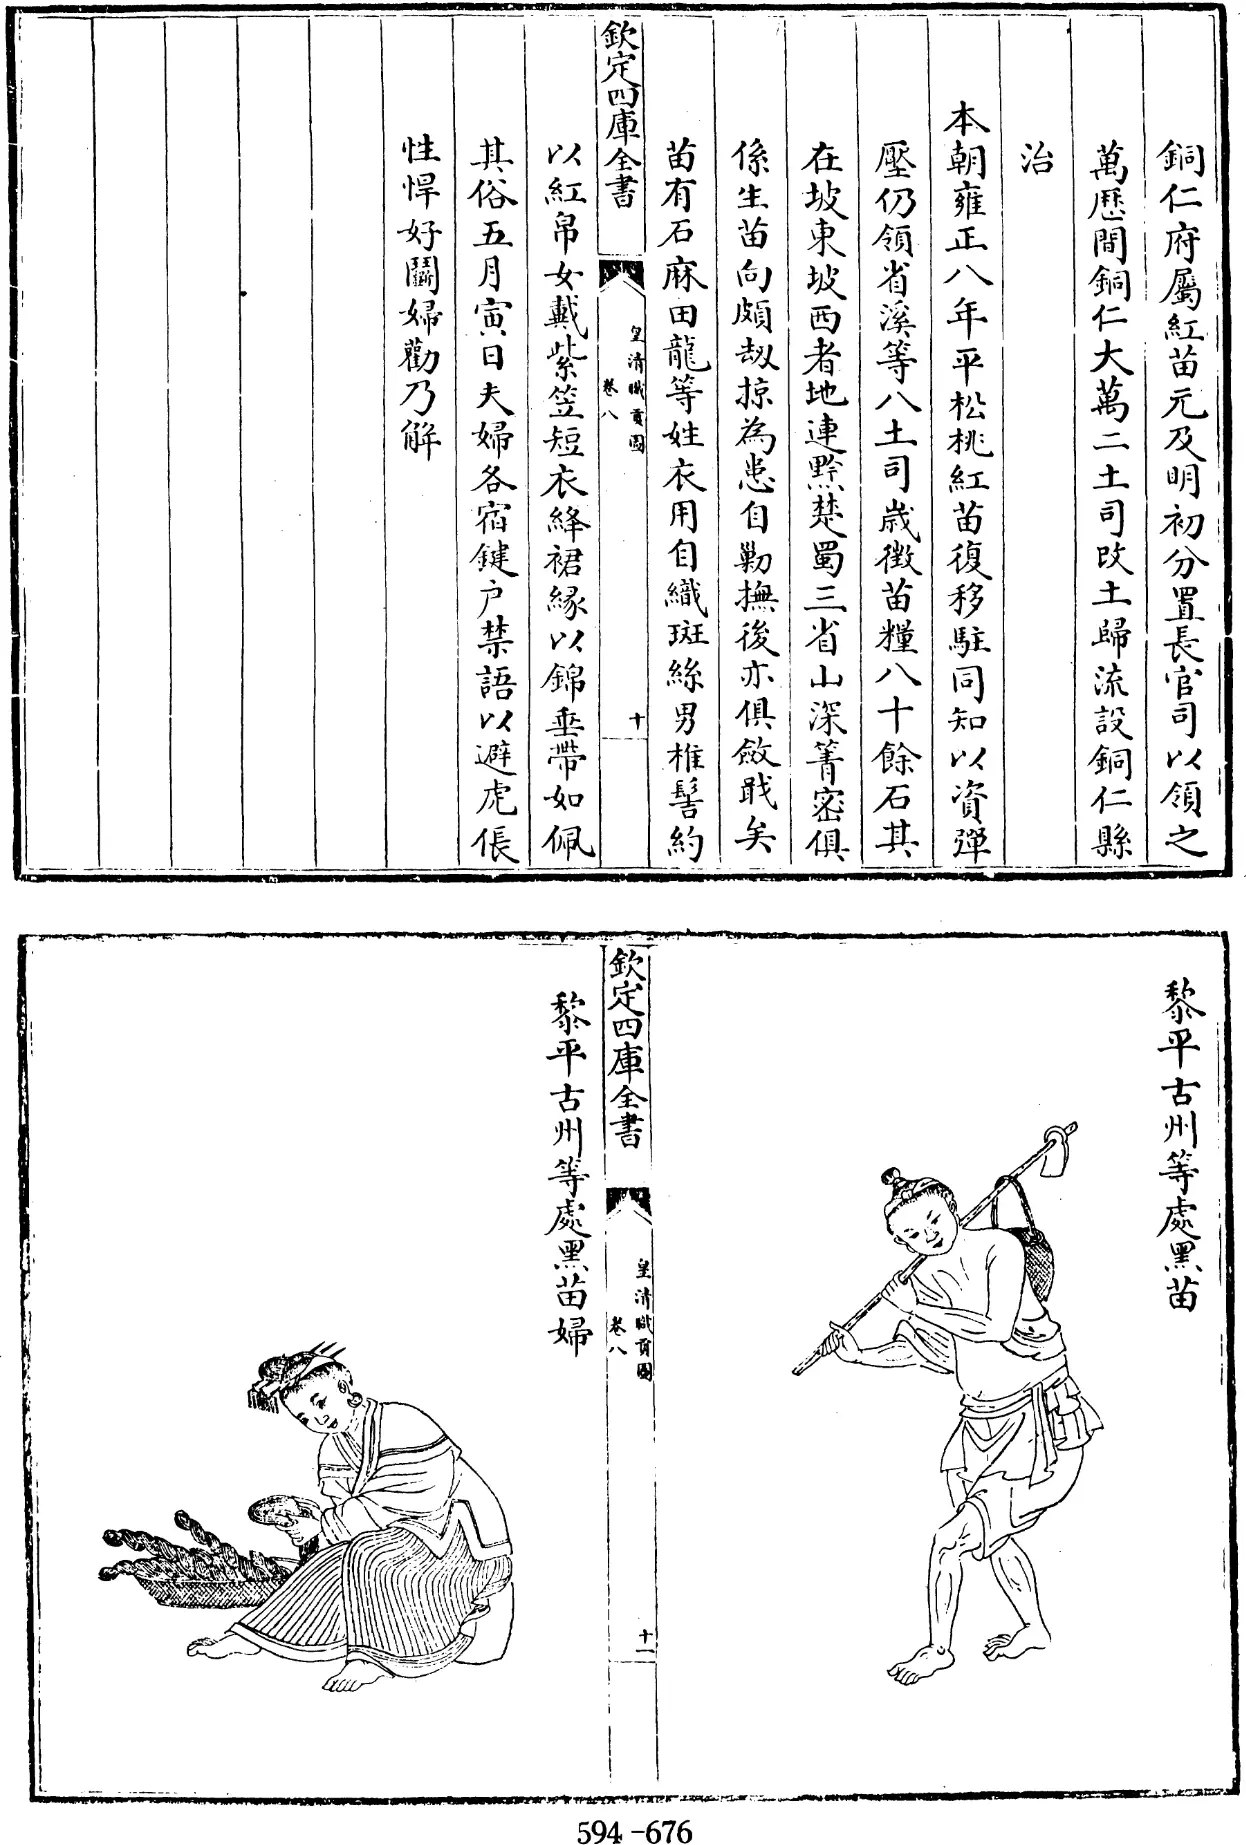 銅仁府屬紅苗元及明初分置長官司以領之
萬歷間銅仁大萬二土司改土歸流設銅仁縣
治
本朝雍正八年平松桃紅苗復移駐同知以資彈
壓仍領省溪等八土司歲徵苗糧八十餘石其
在坡東坡西者地連黔楚蜀三省山深箐密俱
係生苗向頗刼掠為患自勦撫後亦俱斂戢矣
欽定四庫全書
皇清職貢圖
卷八
十
苗有石麻田龍等姓衣用自織斑絲男椎髻約
以紅帛女戴紫笠短衣絳裙緣以錦垂帶如佩
其俗五月寅日夫婦各宿鍵户禁語以避虎倀
性悍好鬭婦勸乃解
黎平古州等處黑苗
欽定四庫全書
皇清職貢圖
卷八
十一
黎平古州等處黑苗婦
594-676